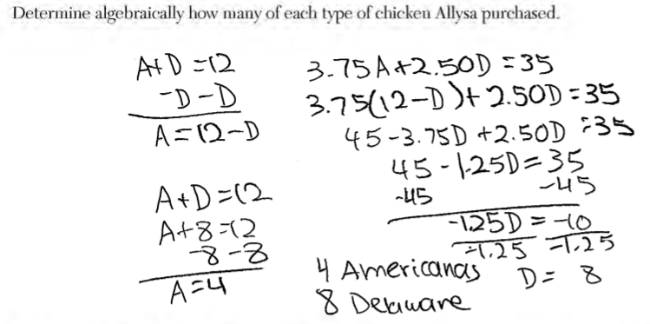 Determine algebraically how many of each type of chicken Allysa purchased.
A+D=12
-D-D
A=12-D
A+D=12
A+8=12
-8-8
A=4
3.75A+2.50D=35
3.75(12-D)+2.50D=35
45-3.75D+2.50D=35
45-1.25D=35
-45 -45
-1.25D=-10
-1.25 -1.25
D=8
4 Americanas
8 Delaware